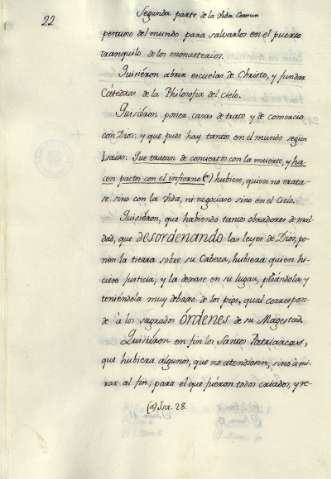 22
Segunda parte de la Vida Comun
del mundo para salvarlos en el puerto
tranquilo de los monasterios.
Quisieron abrir escuelas de Christo, y fundar
Cátedras de la Philosofia del cielo.
Quisieron poner casas de trato y de comercio
con Dios: y que pues hay tantos en el mundo segun
Isaias. Que tratan de concierto con la muerte, y ha-
cen pactos con el infierno (a) hubiese, quien no trata-
se sino con la Vida, ni negociase sino en el Cielo.
Quisieron, que habiendo tantos obradores de mal-
dad, que desordenando las leyes de Dios, po-
nen la tierra sobre su Cabeza, hubiera quien hi-
ciera justicia, y la dexase en su lugar, pisándola, y
teniéndola muy debaxo de los pies, qual correspon-
de á los sagrados órdenes de su Magestad.
Quisieron en fin los Santos Patriarcas,
que hubiera algunos, que no atendiesen, sino á mi-
rar al fin, para el que fuéron todos criados, y re-
(a) Isa. 28.